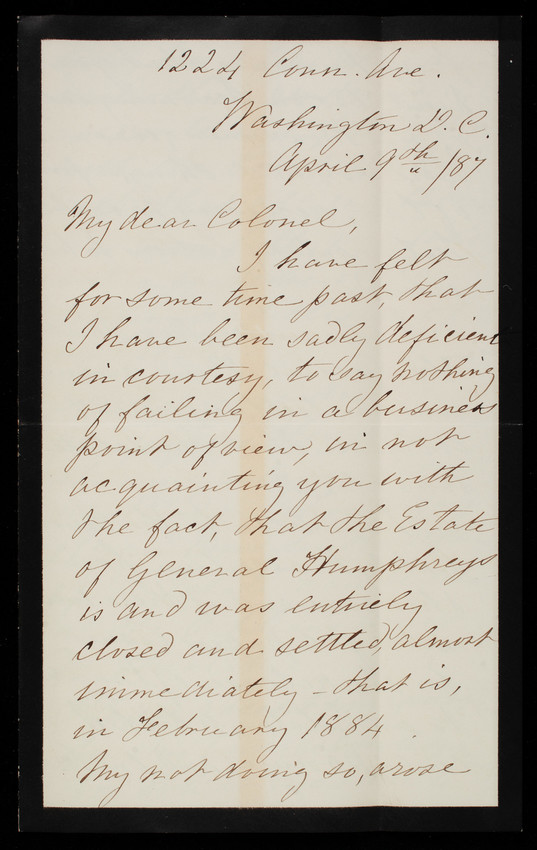 1224 Conn. Ave.
Washington D. C.
April 9th /87
My dear Colonel,
I have felt
for some time past, that
I have been sadly deficient
in courtesy, to say nothing
of failing in a business
point of view, in not
acquainting you with
the fact, that the Estate
of General Humphreys
is and was entirely
closed and settled, almost
immediately - that is,
in February 1884.
My not doing so, arose